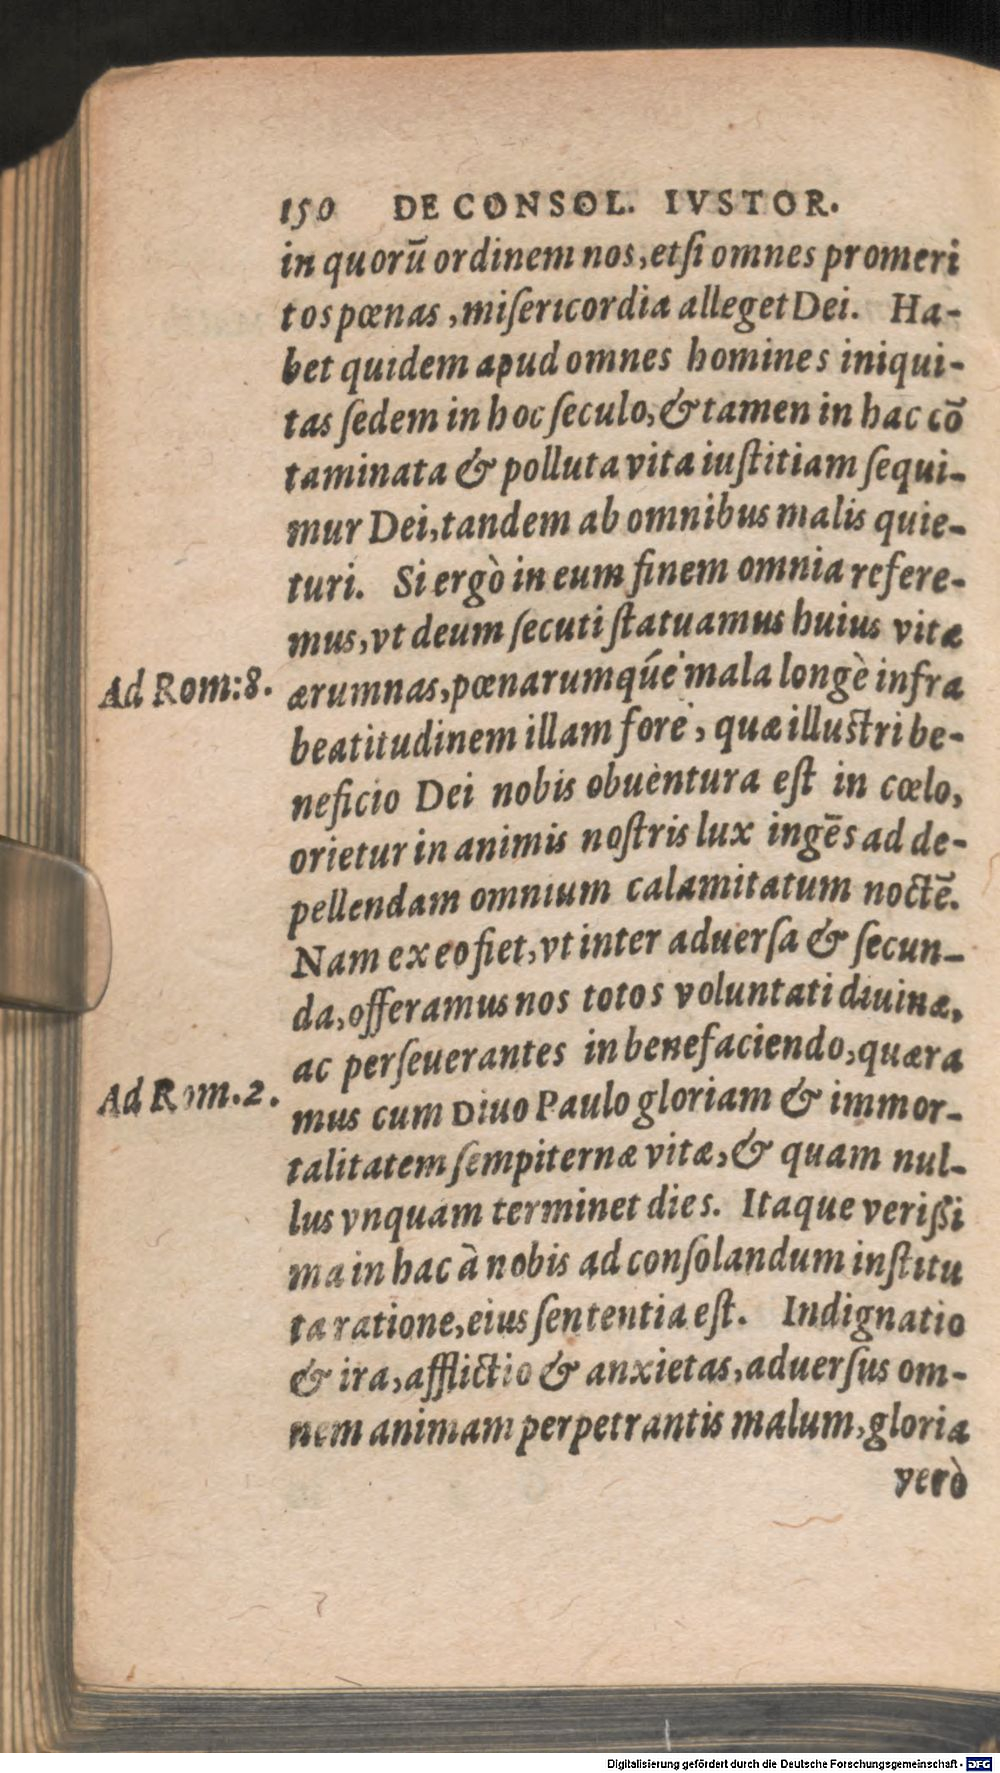 150 DE CONSOL. IVSTOR.
in quorũ ordinem nos, etſi omnes promeri
tos pœnas, miſericordia alleget Dei. Ha-
bet quidem apud omnes homines iniqui-
tas ſedem in hoc ſeculo, & tamen in hac cõ
taminata & polluta vita iuſtitiam ſequi-
mur Dei, tandem ab omnibus malis quie-
turi. Si ergò in eum finem omnia refere-
mus, vt deum ſecuti ſtatuamus huius vitæ
Ad Rom: 8. ærumnas, pœnarumqúe mala longè infra
beatitudinem illam fore, quæ illuſtri be-
neficio Dei nobis obuentura eſt in cœlo,
orietur in animis noſtris lux ingẽs ad de-
pellendam omnium calamitatum noctẽ.
Nam ex eo fiet, vt inter aduerſa & ſecun-
da, offeramus nos totos voluntati diuinæ,
ac perſeuerantes in benefaciendo, quæra
Ad Rom. 2. mus cum Diuo Paulo gloriam & immor-
talitatem ſempiternæ vitæ, & quam nul-
lus vnquam terminet dies. Itaque veriſsi
ma in hac à nobis ad conſolandum inſtitu
ta ratione, eius ſententia eſt. Indignatio
& ira, afflictio & anxietas, aduerſus om-
nem animam perpetrantis malum, gloria
verò
Digitalisierung gefördert durch die Deutsche Forschungsgemeinschaft - DFG